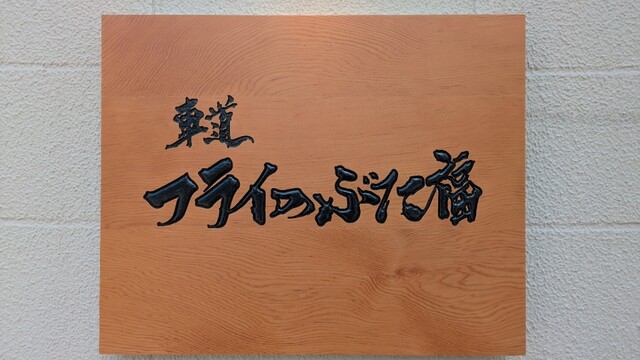 車道
フライのぶた福